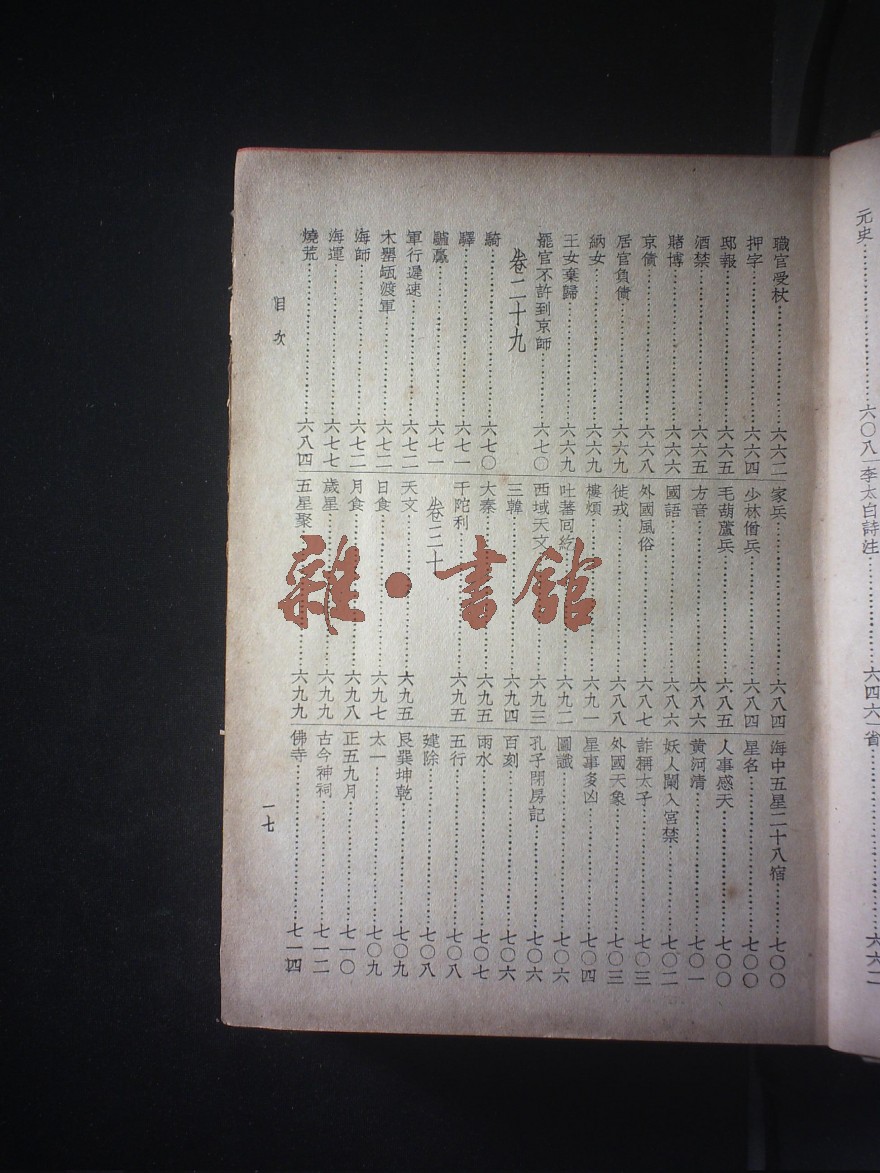 職官受杖……六六二
押字……六六四
邸報……六六五
酒禁……六六五
賭博……六六六
京債……六六八
居官負債……六六九
納女……六六九
王女棄歸……六六九
罷官不許到京師……六七〇
卷二十九
騎……六七〇
驛……六七一
驢驘……六七一
軍行遲速……六七二
木罌缻渡軍……六七二
海師……六七二
海運……六七七
燒荒……六八四
家兵……六八四
少林僧兵……六八四
毛葫蘆兵……六八五
方音……六八六
國語……六八六
外國風俗……六八七
徙戎……六八八
樓煩……六九一
吐蕃回紇……六九二
西域天文……六九三
三韓……六九四
大秦……六九五
干陀利……六九五
卷三十
天文……六九五
日食……六九七
月食……六九八
歲星……六九九
五星聚……六九九
海中五星二十八宿……七〇〇
星名……七〇〇
人事感天……七〇〇
黃河清……七〇一
妖人闌入宮禁……七〇二
詐稱太子……七〇三
外國天象……七〇三
星事多凶……七〇四
圖讖……七〇六
孔子閉房記……七〇六
百刻……七〇六
雨水……七〇七
五行……七〇八
建除……七〇八
艮巽坤乾……七〇九
太一……七〇九
正五九月……七一〇
古今神祠……七一二
佛寺……七一四
目次
一七
元史……六〇八
李太白詩注……六四六
省
六六二
雜·書館